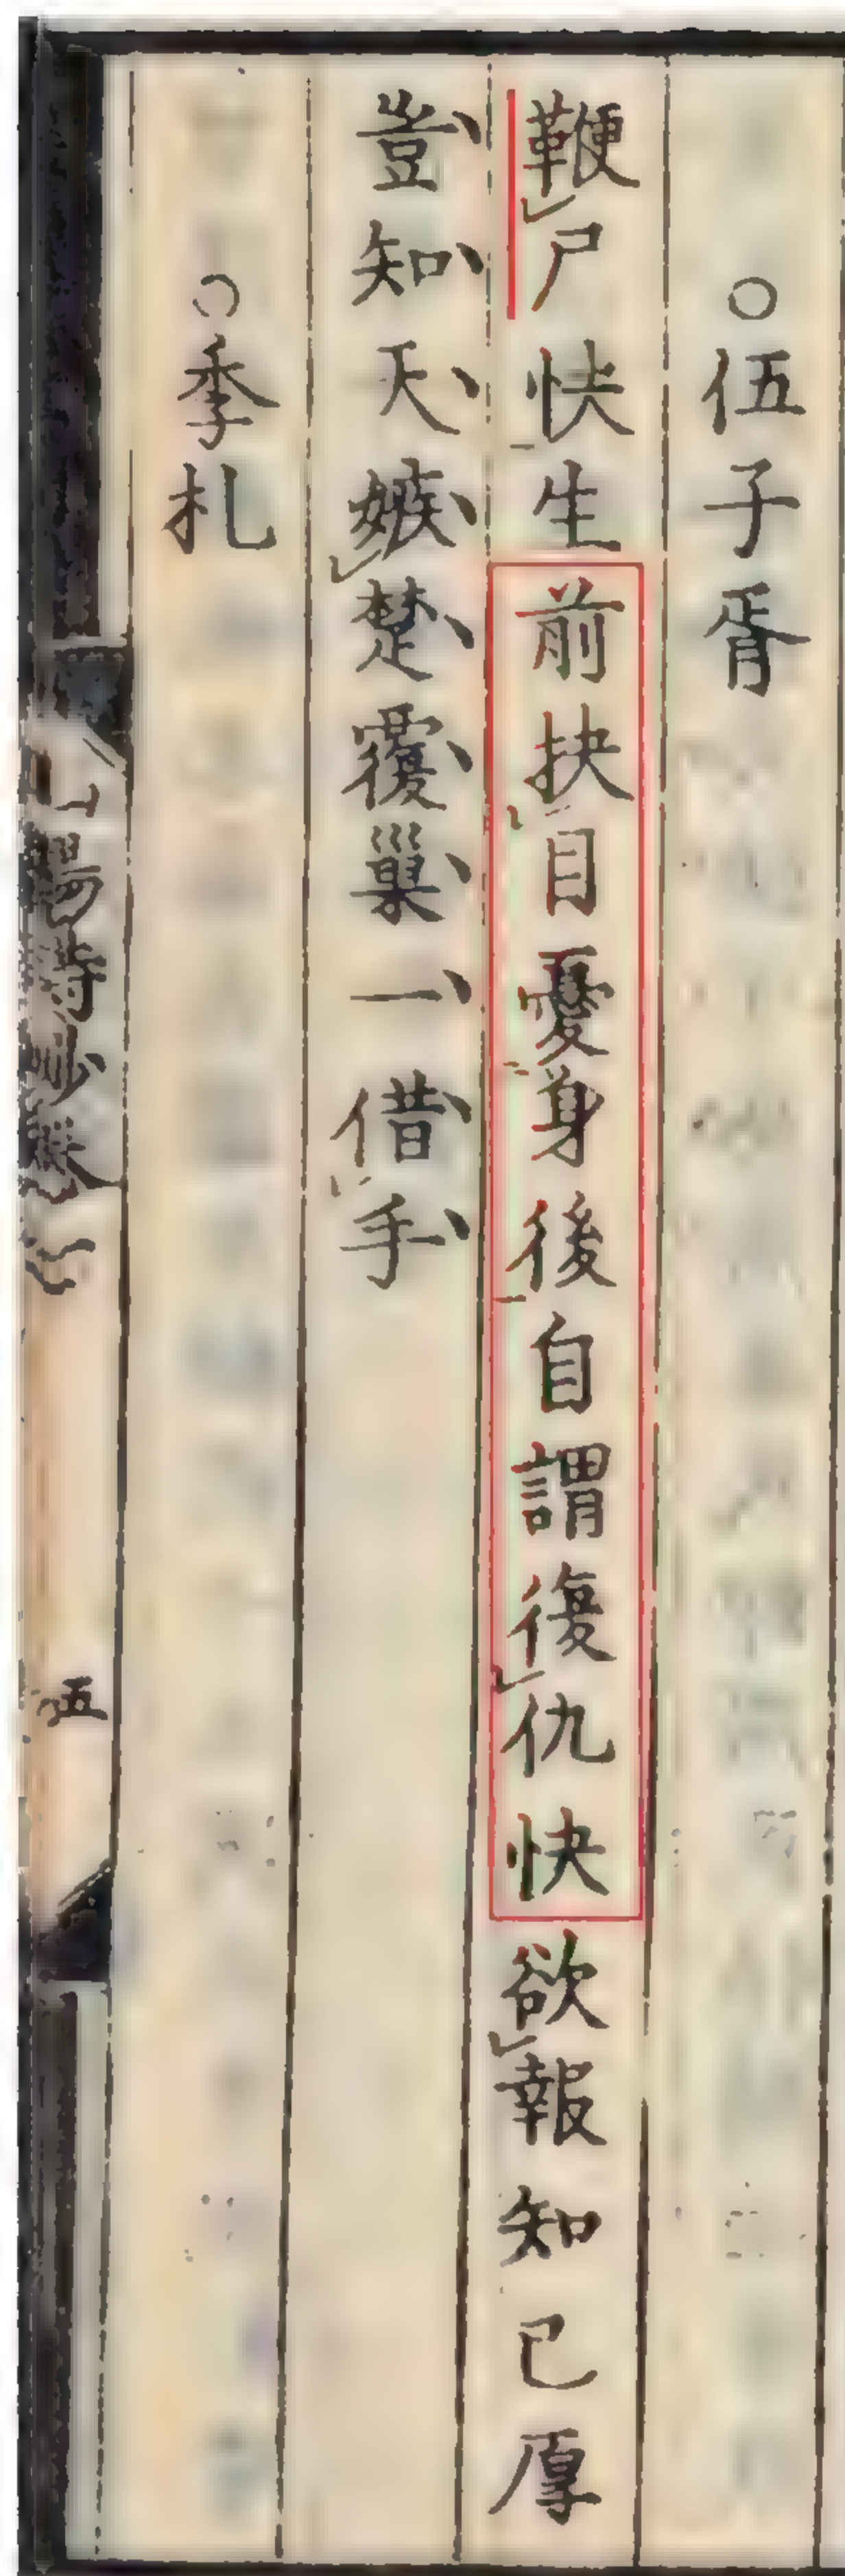 ○伍子胥
鞭尸快生前抉目憂身後自謂復仇快欲報知已厚
豈知天嫉楚覆巢一借手
○季札
五